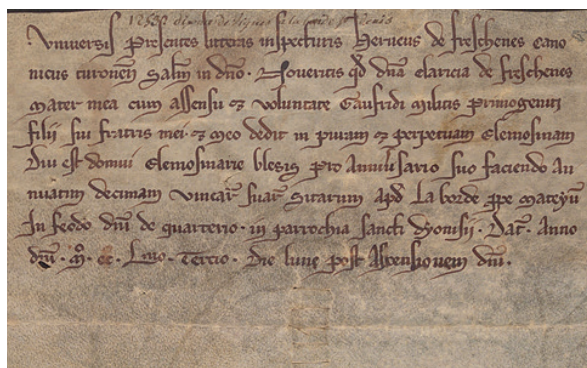 1253 dixme de vignes a la borde St Denis
Universis presentes litteras inspecturis herveus de freschenes cano
nicus turoneñ salm̃ in dño. Noveritis qd̃ dña claricia de freschenes
mater mea cum assensu et voluntate Gaufridi militis primogeniti
filii sui fratris mei. et meo dedit in puram et perpetuam elemosinam
Domui elemosinarie blesis pro anniṽsario suo faciendo an
nuatim decimam vinear̃ suar̃ sitarum apd̃ la borde ppe mateyũ
In feodo dñi de quarterio. in parrochia sancti dyonisii. Dat̃. Anno
dñi. mͦ. cc. Lmo. Tercio. Die lune post Ascensionem dñi.